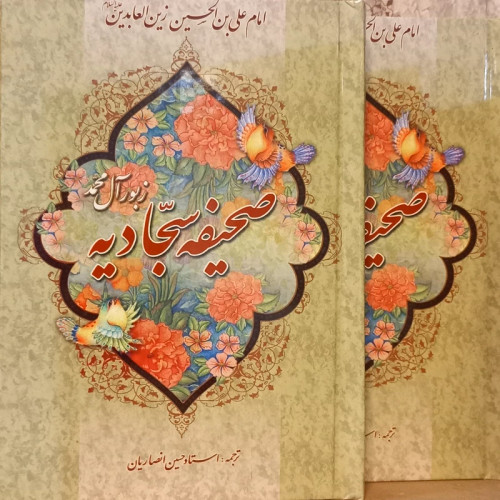 امام علی بن الحسین زین العابدین علیه‌السلام
زبور آل محمد
صحیفه سجّادیه
ترجمه: استاد حسین انصاریان
امام علی بن الحس
صحیف
ترجمه: اس